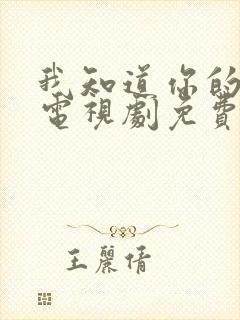 我知道你的
電視劇免費
王麗倩